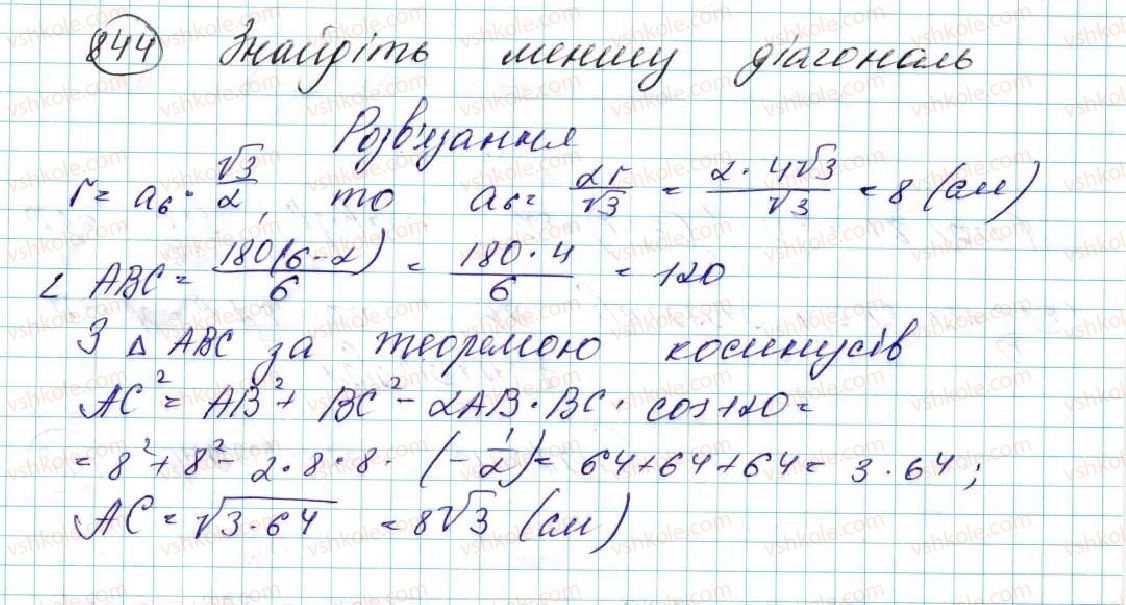 844 Знайдіть меншу діагональ
Розв'язання
r = a₆ · √3/2, то a₆ = 2r/√3 = 2 · 4√3/√3 = 8 (см)
∠ ABC = 180(6-2)/6 = 180 · 4/6 = 120
З △ ABC за теоремою косинусів
AC² = AB² + BC² - 2AB · BC · cos 120 =
= 8² + 8² - 2 · 8 · 8 · (-1/2) = 64 + 64 + 64 = 3 · 64;
AC = √3 · 64 = 8√3 (см)